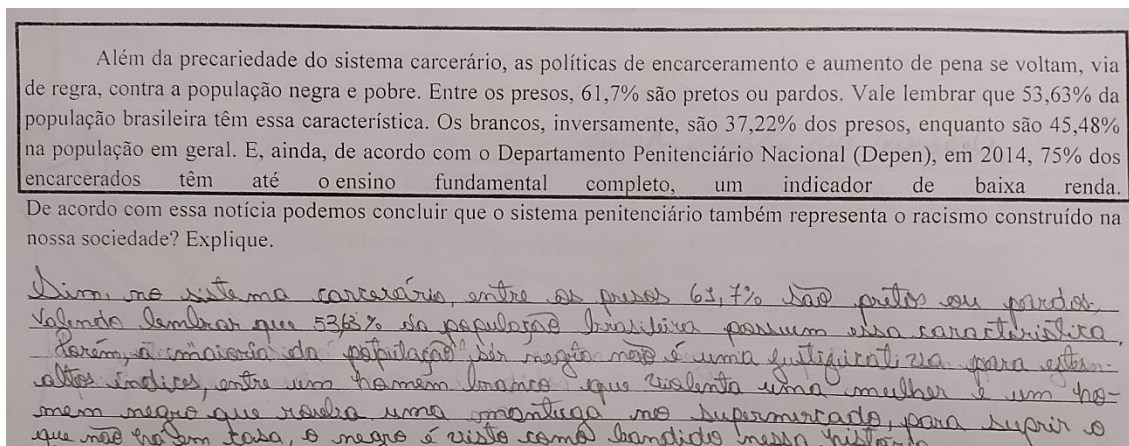 Além da precariedade do sistema carcerário, as políticas de encarceramento e aumento de pena se voltam, via
de regra, contra a população negra e pobre. Entre os presos, 61,7% são pretos ou pardos. Vale lembrar que 53,63% da
população brasileira têm essa característica. Os brancos, inversamente, são 37,22% dos presos, enquanto são 45,48%
na população em geral. E, ainda, de acordo com o Departamento Penitenciário Nacional (Depen), em 2014, 75% dos
encarcerados têm até o ensino fundamental completo, um indicador de baixa renda.
De acordo com essa notícia podemos concluir que o sistema penitenciário também representa o racismo construído na
nossa sociedade? Explique.
Sim, no sistema carcerário, entre os presos 61,7% são pretos ou pardos,
Valendo lembrar que 53,63% da população brasileira possuem essa característica.
Porém, a maioria da população ser negra não é uma justificativa para estes
altos índices, entre um homem branco que violenta uma mulher e um ho-
mem negro que rouba uma mantega no supermercado, para suprir o
que não há em casa, o negro é visto como bandido nessa história